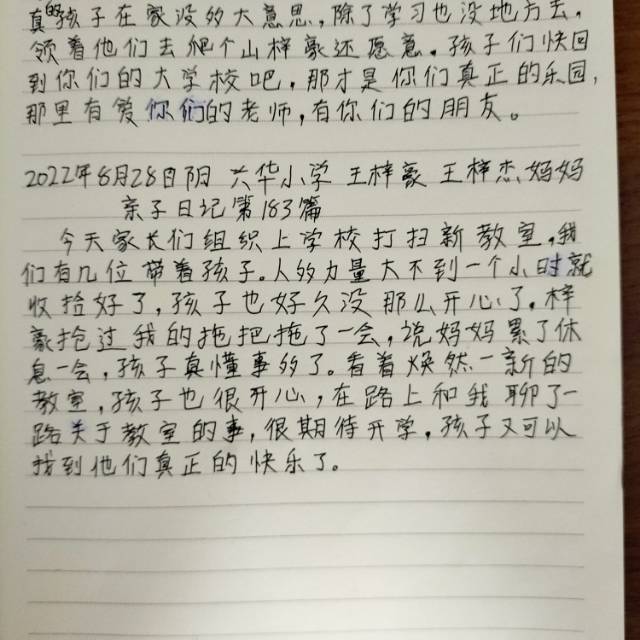 真的孩子在家没多大意思，除了学习也没地方去，
领着他们去爬个山梓豪还愿意。孩子们快回
到你们的大学校吧，那才是你们真正的乐园，
那里有爱你们的老师，有你们的朋友。
2022年8月28日阴 六华小学 王梓豪 王梓杰妈妈
亲子日记第183篇
今天家长们组织上学校打扫新教室，我
们有几位带着孩子。人多力量大不到一个小时就
收拾好了，孩子也好久没那么开心了。梓
豪抢过我的拖把拖了一会，说妈妈累了休
息一会，孩子真懂事多了。看着焕然一新的
教室，孩子也很开心，在路上和我聊了一
路关于教室的事，很期待开学，孩子又可以
找到他们真正的快乐了。